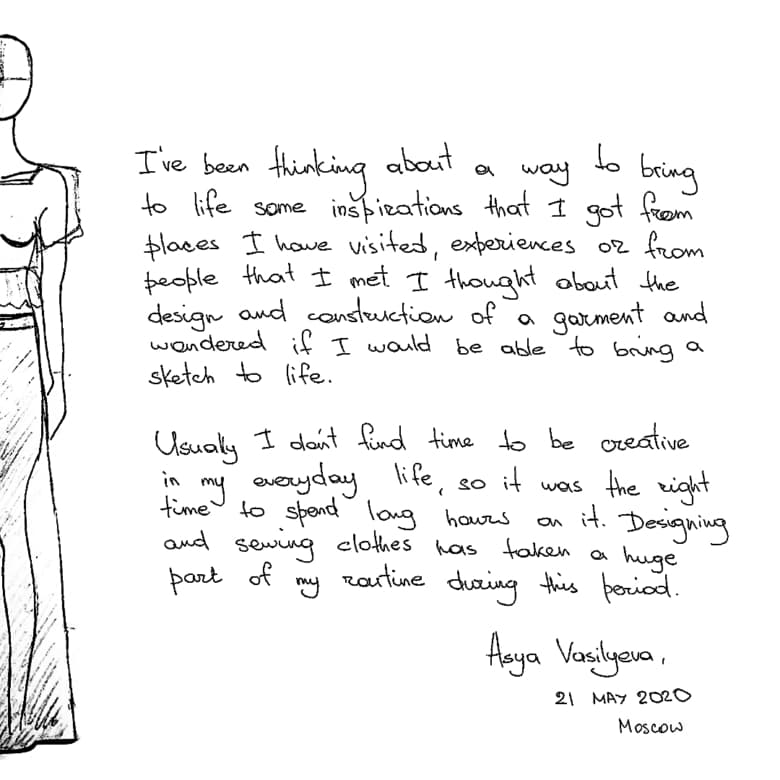 I've been thinking about a way to bring
to life some inspirations that I got from
places I have visited, experiences or from
people that I met I thought about the
design and construction of a garment and
wondered if I would be able to bring a
sketch to life.
Usually I don't find time to be creative
in my everyday life, so it was the right
time to spend long hours on it. Designing
and sewing clothes has taken a huge
part of my routine during this period.
Asya Vasilyeva,
21 MAY 2020
Moscow